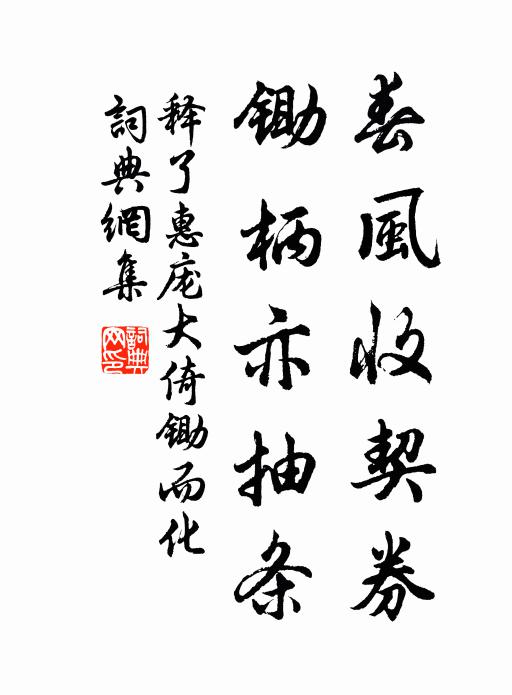 春風收契券
鋤柄亦抽条
释了惠庞大倚鋤而化
詞典網集
詞典网印